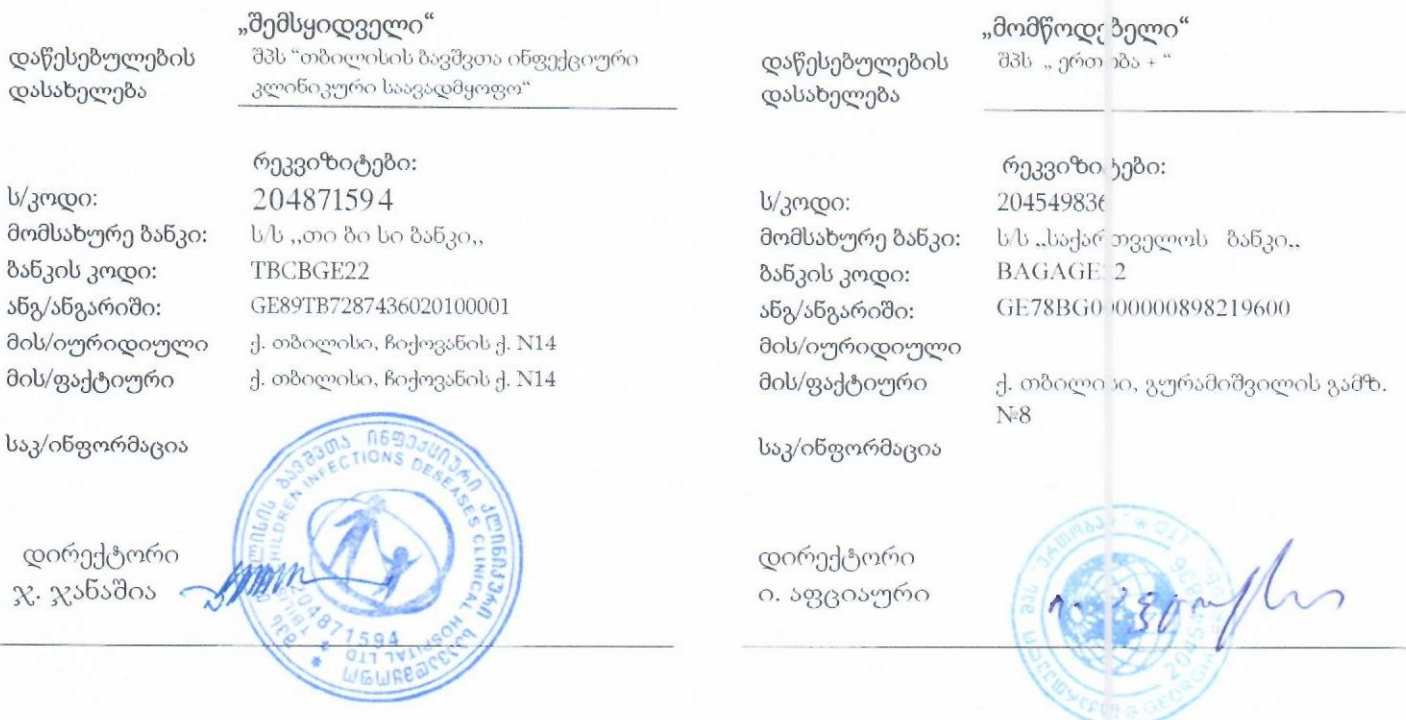 „შემსყიდველი“
დაწესებულების დასახელება
შპს “თბილისის ბავშვთა ინფექციური
კლინიკური საავადმყოფო“
რეკვიზიტები:
ს/კოდი: 204871594
მომსახურე ბანკი: ს/ს ,,თი ბი სი ბანკი,,
ბანკის კოდი: TBCBGE22
ანგ/ანგარიში: GE89TB7287436020100001
მის/იურიდიული ქ. თბილისი, ჩიქოვანის ქ. N14
მის/ფაქტიური ქ. თბილისი, ჩიქოვანის ქ. N14
საკ/ინფორმაცია
დირექტორი
ჯ. ჯანაშია
CHILDREN INFECTIONS DESEASES CLINICAL HOSPITAL LTD
204871594
„მომწოდებელი“
დაწესებულების დასახელება
შპს „ ერთობა + “
რეკვიზიტები:
ს/კოდი: 204549836
მომსახურე ბანკი: ს/ს ,,საქართველოს ბანკი,,
ბანკის კოდი: BAGAGE22
ანგ/ანგარიში: GE78BG0000000898219600
მის/იურიდიული
მის/ფაქტიური ქ. თბილისი, გურამიშვილის გამზ.
№8
საკ/ინფორმაცია
დირექტორი
ი. აფციაური